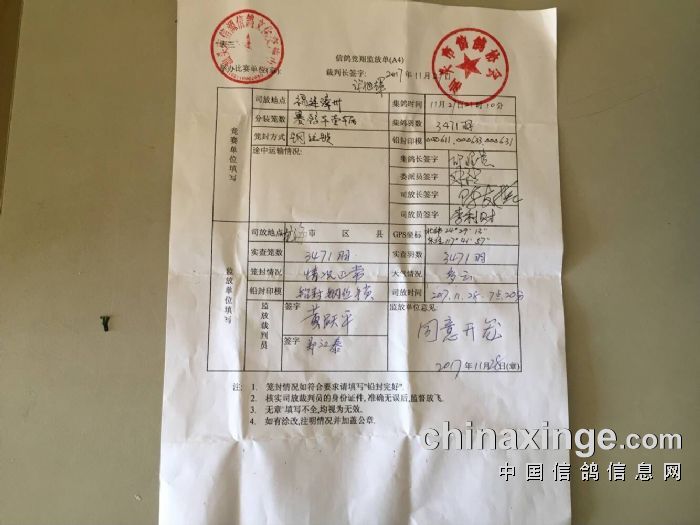 信鸽竞翔监放单(A4)
裁判长签字: 2017年11月27日
竞赛单位填写
司放地点 福建漳州 集鸽时间 11月27日21时10分
分装笼数 赛鸽车壹辆 集鸽羽数 3471羽
笼封方式 钢丝锁 铅封印模
途中运输情况: 集鸽长签字
委派员签字
司放长签字
司放员签字 李利财
监放单位填写
司放地点 市 区 县 GPS坐标 北纬24°29′13″
东经117°41′57″
实查笼数 3471羽 实查羽数 3471羽
笼封情况 情况正常 天气情况 多云
铅封印模 铅封钢丝锁 司放时间 2017.11.28 7点20分
监放裁判员 签字 黄跃平 监放单位意见:
签字 同意开笼
2017年11月28日(章)
注: 1. 笼封情况如符合要求请填写"铅封完好"。
2. 核实司放裁判员的身份证件,准确无误后,监督放飞。
3. 无章 填写不全,均视为无效。
4. 如有涂改,注明情况并加盖公章.
chinaxinge.com
中国信鸽信息网